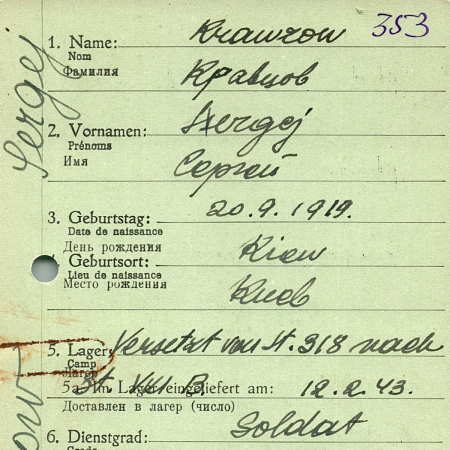 353
1. Name: Krawzow
Nom
Фамилия Кравцов
2. Vornamen: Sergej
Prénoms
Имя Сергей
3. Geburtstag: 20.9.1919.
Date de naissance
День рождения
Geburtsort: Kiew
Lieu de naissance
Место рождения Киев
5. Lager: Versetzt von St. 318 nach
Camp
Лагерь
St. VIII B.
5a. Im Lager eingeliefert am: 12.2.43.
Доставлен в лагерь (число)
6. Dienstgrad: Soldat
Grade
Sergej